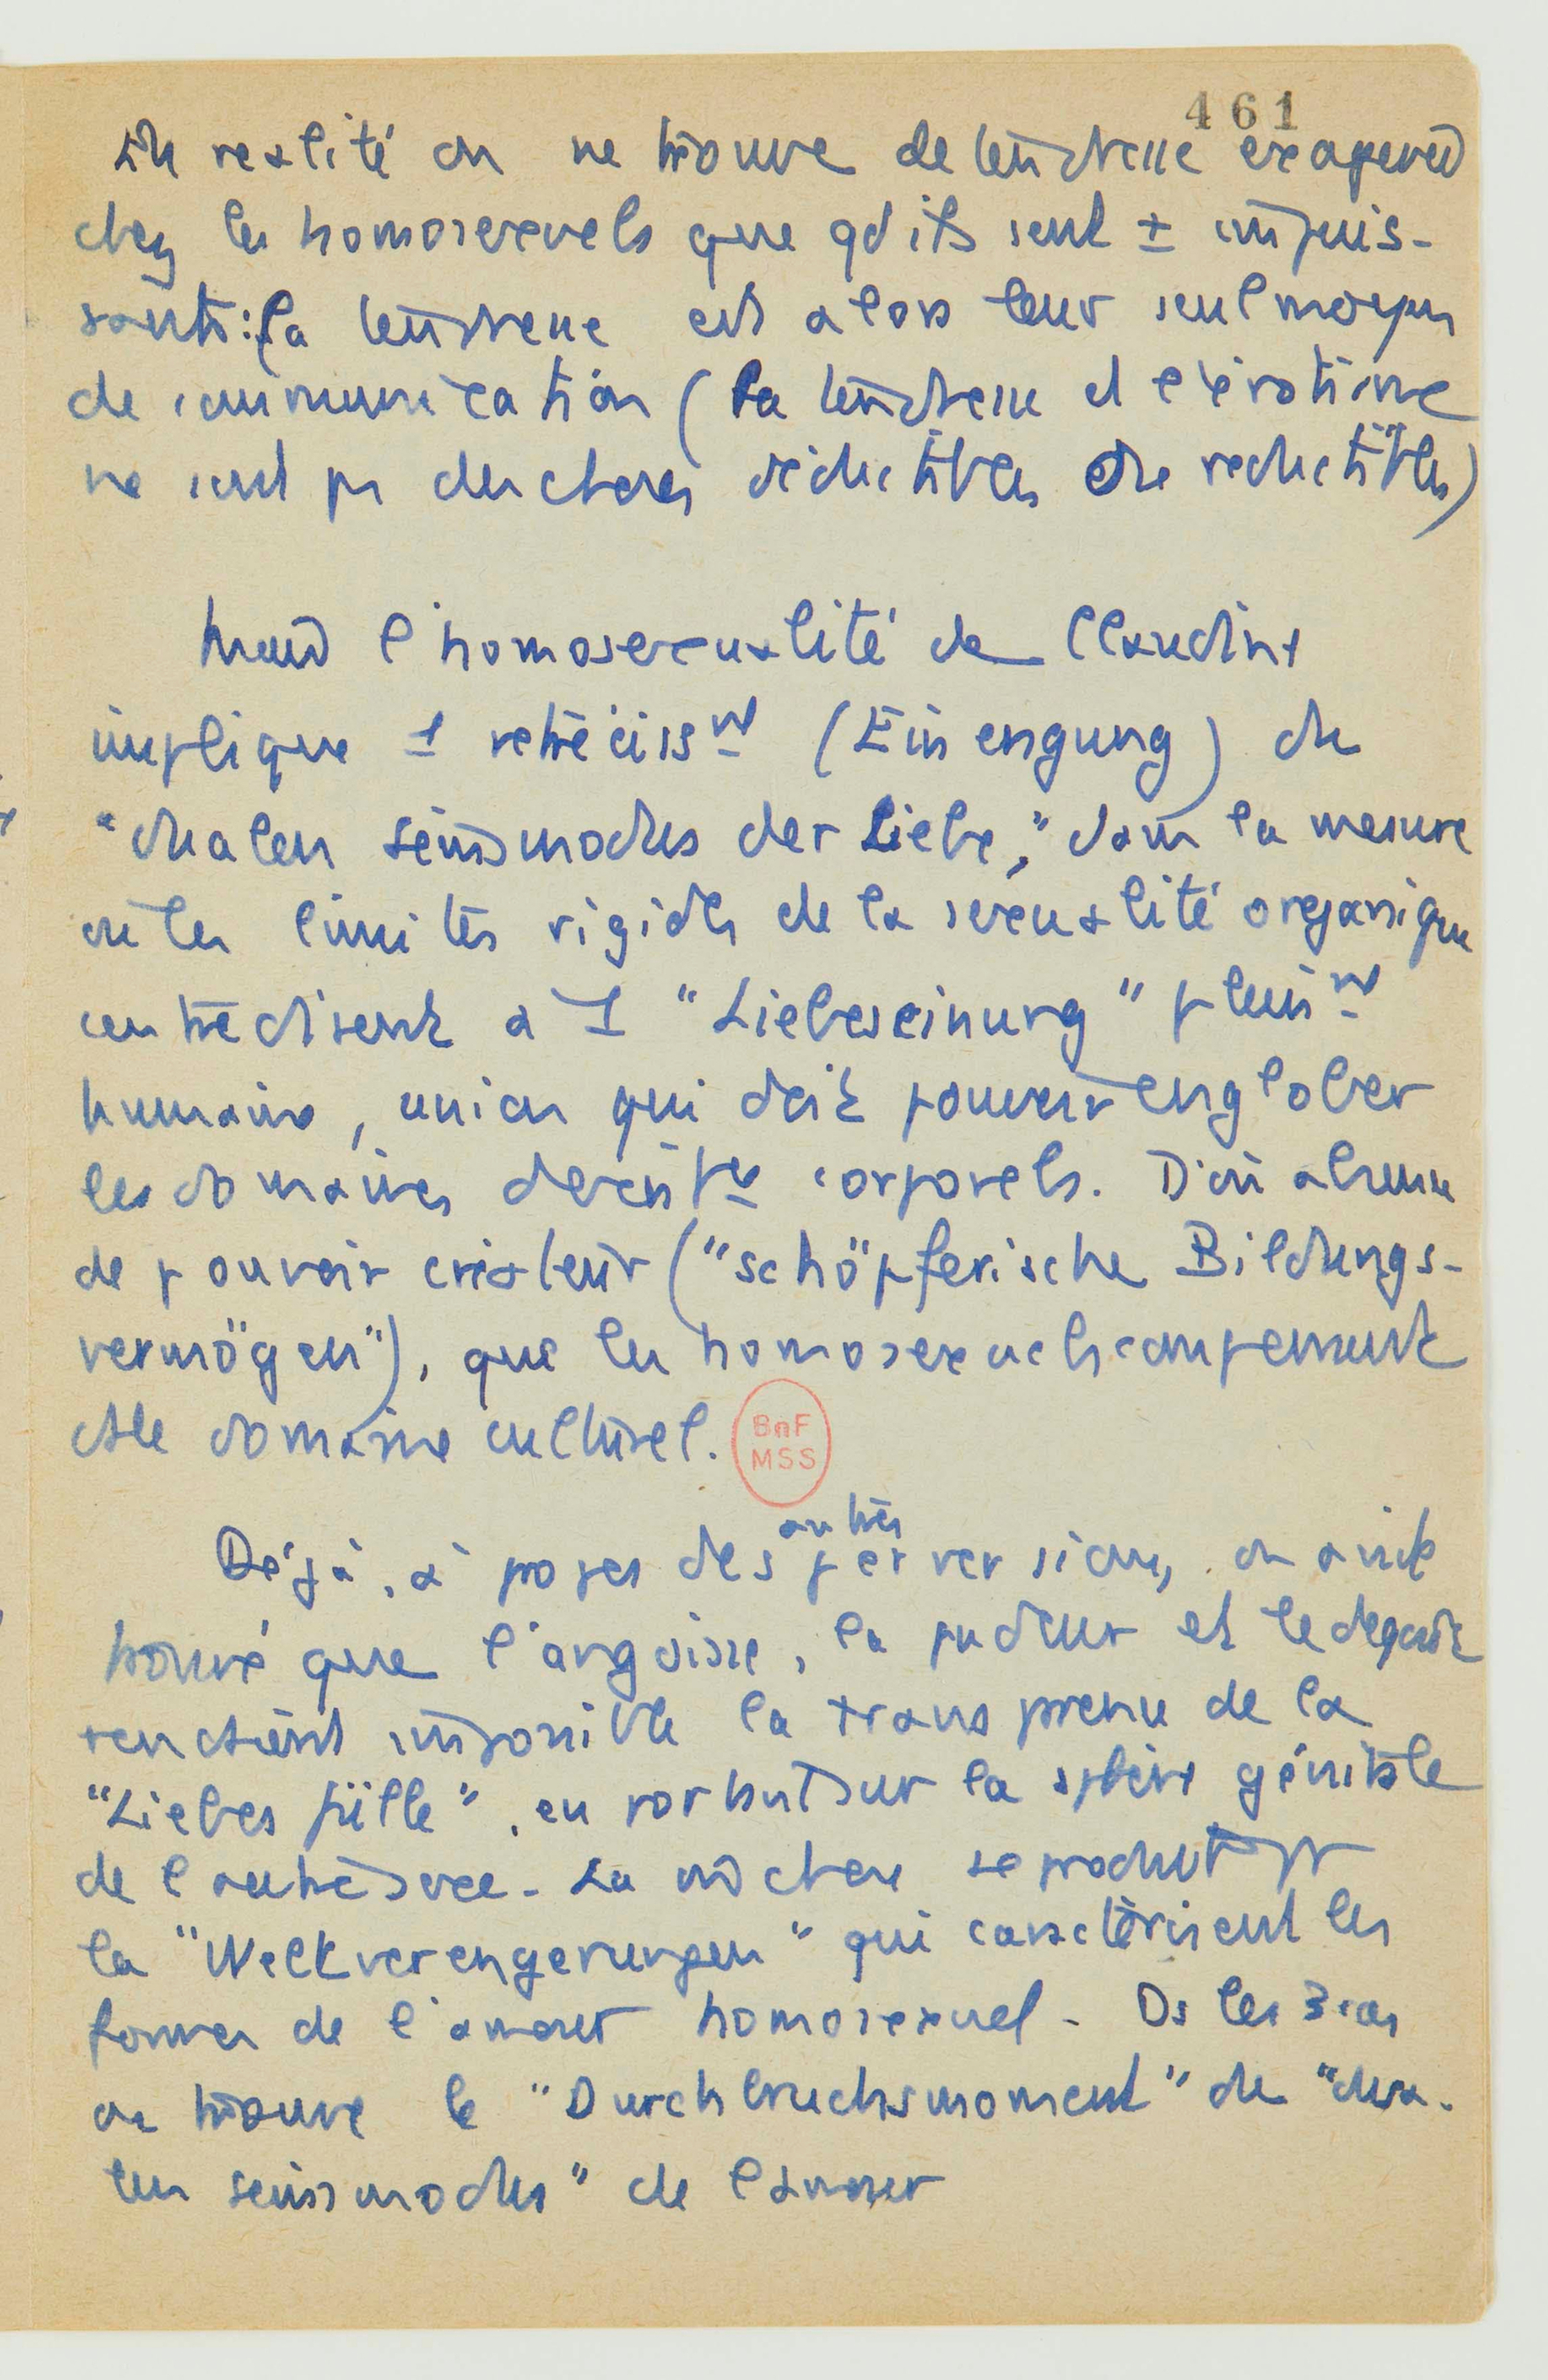 461
En realité on ne trouve de tendresse exagerée
chez les homosexuels que qd ils sont ± impuis-
sants : la tendresse est alors leur seul moyen
de communication (la tendresse et l'érotisme
ne sont pas des choses déductibles ou reductibles)
l'homosexualité de Claudine
implique 1 retrécissnt (Einengung) du
"dualen Seinsmodus der Liebe," dans la mesure
où les limites rigides de la sexualité organique
contredisent à 1 "Liebeseinung" pleinnt
humaine, union qui doit pouvoir englober
les domaines corporels. D'où absence
de pouvoir créateur ("schöpferische Bildungs-
vermögen"), que les homosexuels compensent
ds le domaine culturel.
BnF
MSS
Déjà, à propos des autres perversions, on avait
trouvé que l'angoisse, la pudeur et le degout
rendaient impossible la transparence de la
"Liebesfülle", en portant sur la sphère génitale
de l'autre sexe. La mê chose se produit pr
la "Weltverengerungen" qui caractérisent les
formes de l'amour homosexuel. Ds les 3 cas
on trouve le "Durchbruchsmoment" du "dua-
len Seinsmodus" de l'amour